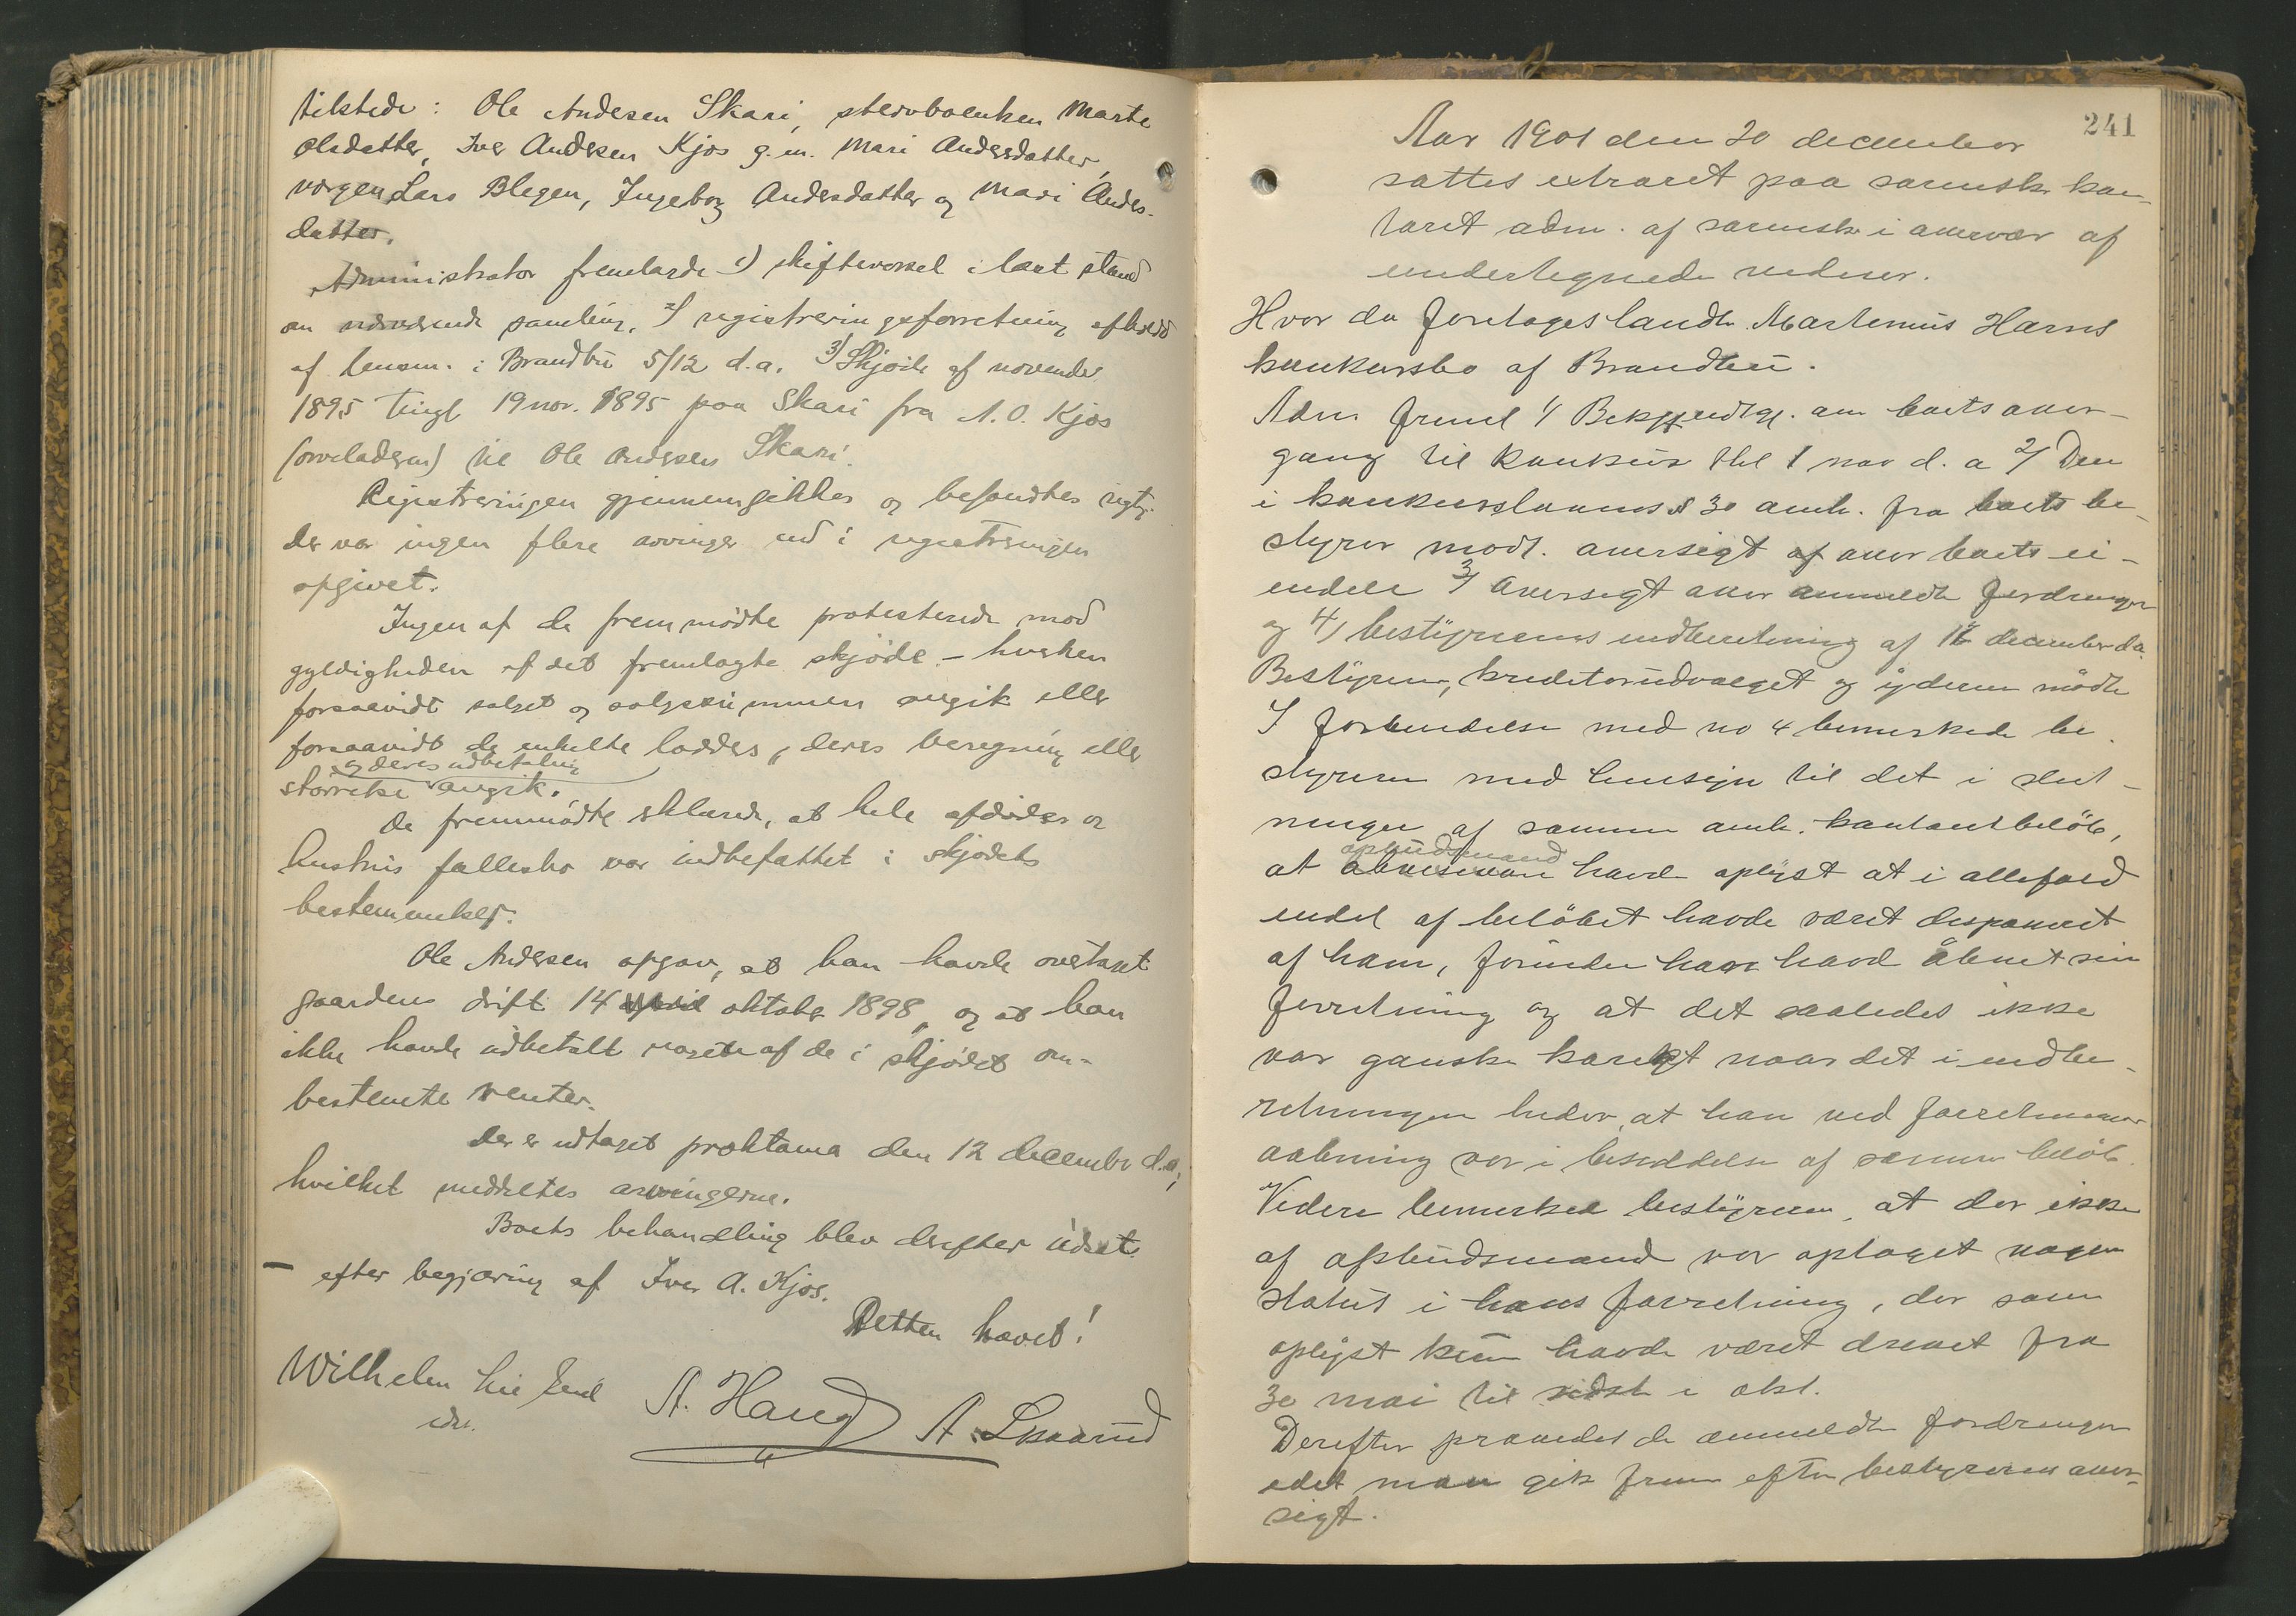 tilstede: Ole Andersen Skari, stervboenken Marte
Olsdatter, Iver Andersen Kjos g.m. Mari Andersdatter,
vergen Lars Blegen, Ingeborg Andersdatter og Mari Anders-
datter.
Administrator fremlagde 1) skiftevarsel i lovl. stand
om nærværende samling, 2) registreringsforretning afholdt
af lensm. i Brandbu 5/12 d.a. 3) Skjøde af november
1895 tingl 19 nov. 1895 paa Skari fra A. O. Kjos
(arveladeren) til Ole Andersen Skari.
Registreringen gjennemgikkes og befandtes rigtig.
der var ingen flere arvinger end i registreringen
opgivet.
Ingen af de fremmødte protesterede mod
gyldigheden af det fremlagte skjøde - hverken
forsaavidt salget og salgssummen angik eller
forsaavidt de enkelte lodder, deres beregning eller
og deres udbetaling
størrelse angik.
De fremmødte erklærede, at hele afdødes og
hustrus fællesbo var indbefattet i skjødets
bestemmelser.
Ole Andersen opgav, at han havde overtaget
gaardens drift 14 april oktober 1898, og at han
ikke havde udbetalt noget af de i skjødet om-
bestemte renter.
Der er udtaget proklama den 12 december d.a.,
hvilket meddeltes arvingerne.
Boets behandling blev derefter udsat
- efter begjæring af Iver A. Kjos.
Retten hævet!
Wilhelm Lie
A. Haug A. Lysaarud
241
Aar 1901 den 20 december
sattes extraret paa sorensk. kon-
toret adm. af sorensk. i overvær af
undertegnede vidner.
Hvor da foretoges landh. Martenius Harns
konkursbo af Brandbu.
Adm freml 1/ Bekjendtgj. om boets over-
gang til konkurs thl 1 nov d. a 2/ Den
i konkurslovens § 30 omh. fra boets be-
styrer modt. oversigt af over boets ei-
endele 3/ Oversigt over anmeldte fordringer
og 4/ bestyrerens indberetning af 16 december d.a.
Bestyreren, kreditorudvalget og yderen mødte
I forbindelse med no 4 bemerkede be-
styreren med hensyn til det i slut-
ningen af samme omh. kontantbeløb,
opbudsmand
at havde oplyst at i allefald
endel af beløbet havde været disponeret
af ham, førinden han havd åbnet sin
forretning og at det saaledes ikke
var ganske korekt naar det i indbe-
retningen heder, at han ved forretningens
aabning var i besiddelse af samme beløb.
Videre bemerked bestyreren, at der ikke
af opbudsmand var optaget nogen
status i hans forretning, der som
oplyst kun havde været drevet fra
30 mai til sidst i okt.
Derefter prøvedes de anmeldte fordringer
idet man gik frem efter bestyrerens over-
sigt.